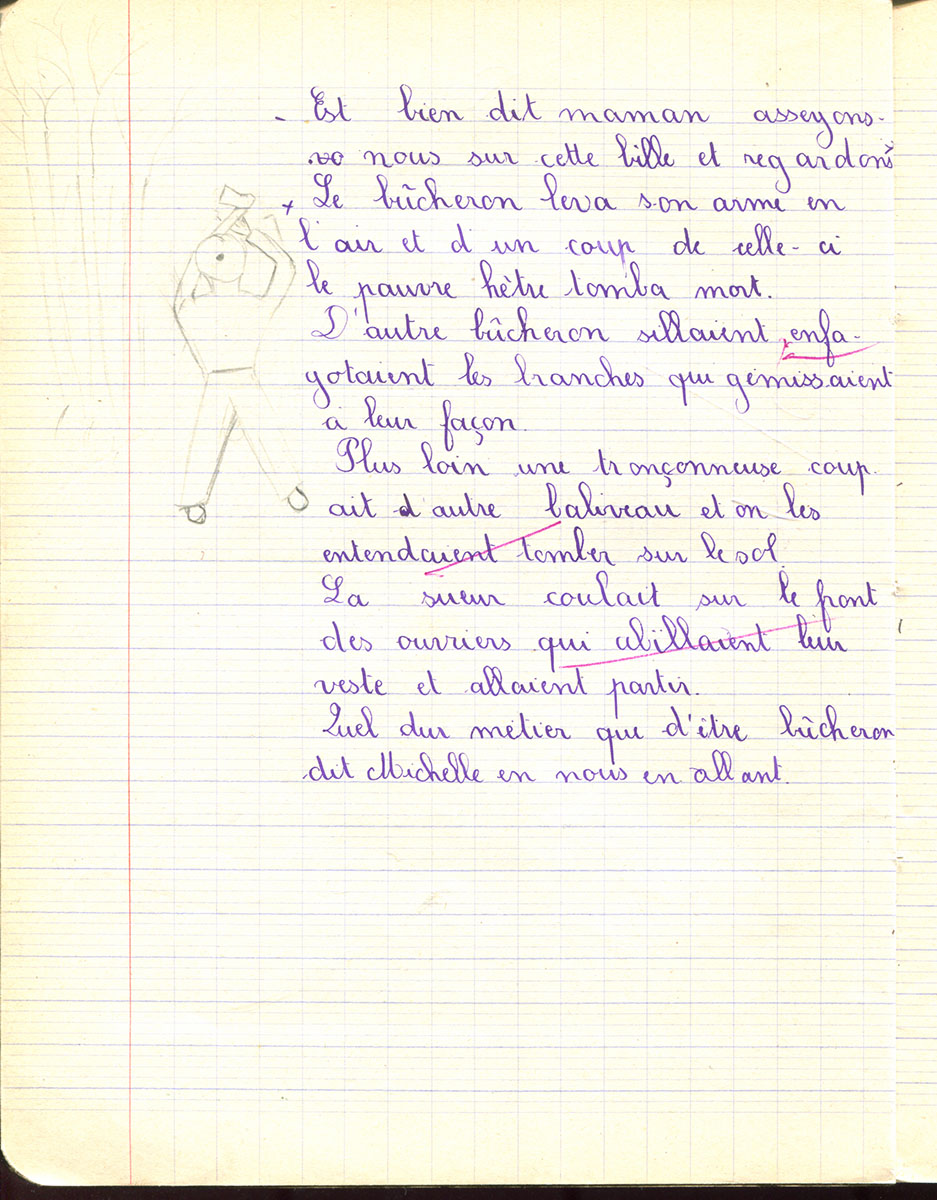 - Est bien dit maman asseyons-
vo nous sur cette bille et regardons
+ Le bûcheron leva son arme en
l'air et d'un coup de celle-ci
le pauvre hêtre tomba mort.
D'autre bûcheron sillaient, enfa-
gotaient les branches qui gémissaient
à leur façon.
Plus loin une tronçonneuse coup
ait d'autre baliveau et on les
entendaient tomber sur le sol
La sueur coulait sur le front
des ouvriers qui abillaient leur
veste et allaient partir.
Quel dur métier que d'être bûcheron
dit Michelle en nous en allant.